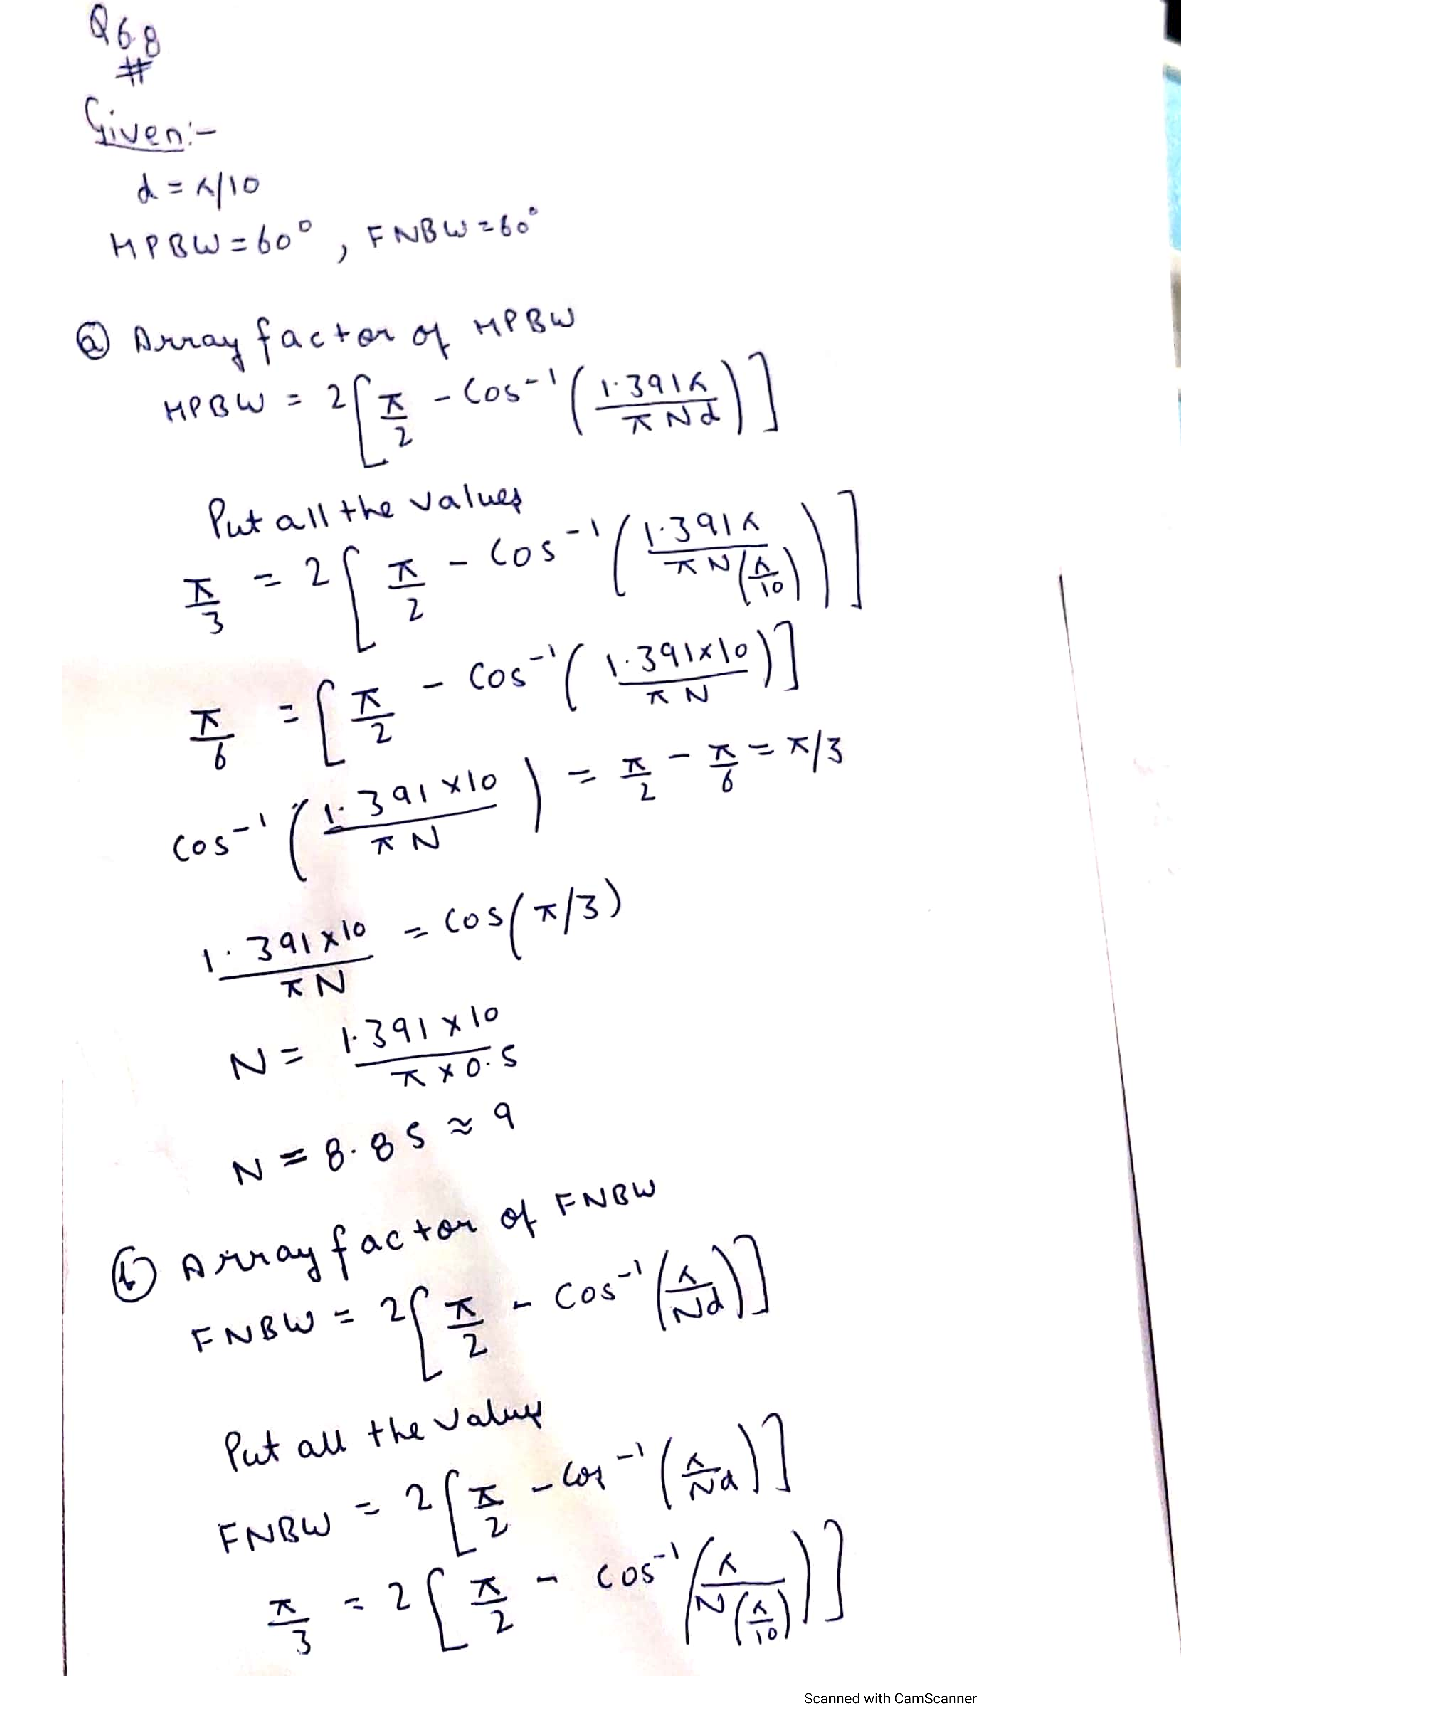 Q6.8
#
Given:-
d = λ/10
HPBW = 60°, FNBW = 60°
(a) Array factor of HPBW
HPBW = 2[π/2 - Cos⁻¹(1.391λ/πNd)]
Put all the values
π/3 = 2[π/2 - Cos⁻¹(1.391λ/πN(λ/10))]
π/6 = [π/2 - Cos⁻¹(1.391×10/πN)]
Cos⁻¹(1.391×10/πN) = π/2 - π/6 = π/3
1.391×10/πN = Cos(π/3)
N = 1.391×10/π×0.5
N = 8.85 ≈ 9
(b) Array factor of FNBW
FNBW = 2[π/2 - Cos⁻¹(λ/Nd)]
Put all the values
FNBW = 2[π/2 - Cos⁻¹(λ/Nd)]
π/3 = 2[π/2 - Cos⁻¹(λ/N(λ/10))]
Scanned with CamScanner